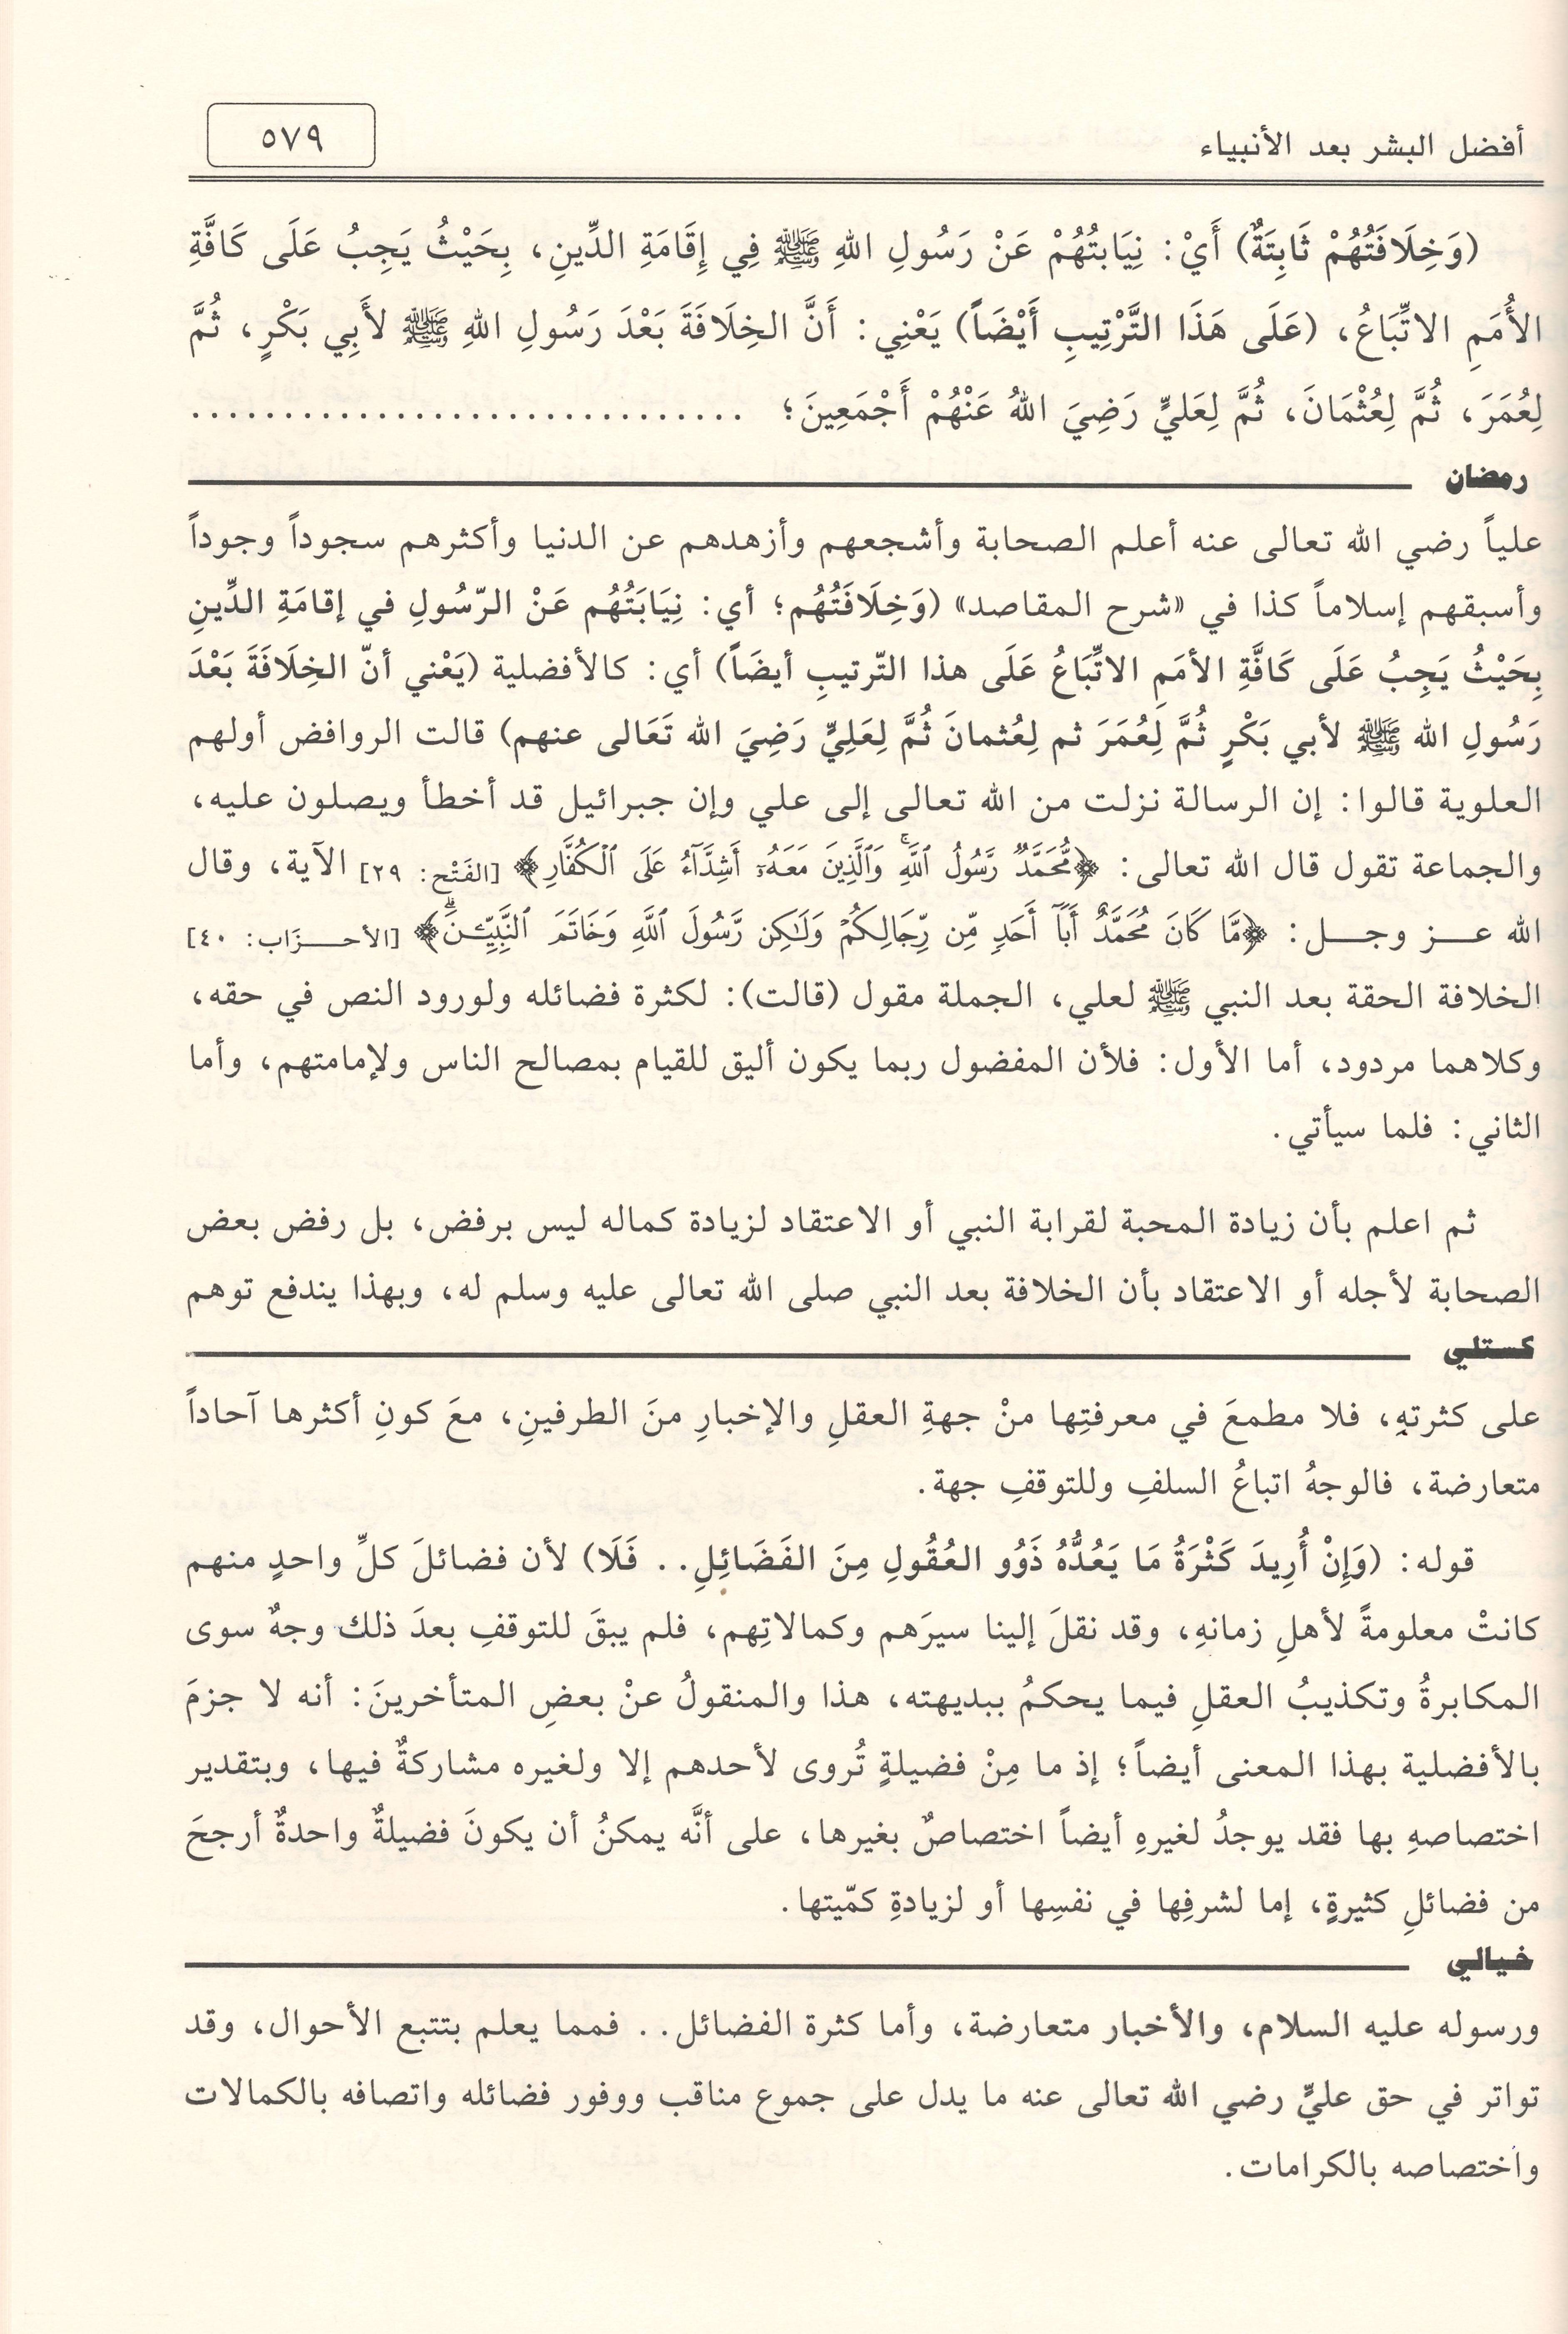 أفضل البشر بعد الأنبياء
٥٧٩
(وَخِلَافَتُهُمْ ثَابِتَةٌ) أَيْ: نِيَابتُهُمْ عَنْ رَسُولِ اللهِ ﷺ فِي إِقَامَةِ الدِّينِ، بِحَيْثُ يَجِبُ عَلَى كَافَّةِ
الأُمَمِ الاتِّبَاعُ، (عَلَى هَذَا التَّرْتِيبِ أَيْضَاً) يَعْنِي: أَنَّ الخِلَافَةَ بَعْدَ رَسُولِ اللهِ ﷺ لأَبِي بَكْرٍ، ثُمَّ
لِعُمَرَ، ثُمَّ لِعُثْمَانَ، ثُمَّ لِعَليٍّ رَضِيَ اللهُ عَنْهُمْ أَجْمَعِينَ؛ ..............................
رمضان
علياً رضي الله تعالى عنه أعلم الصحابة وأشجعهم وأزهدهم عن الدنيا وأكثرهم سجوداً وجوداً
وأسبقهم إسلاماً كذا في «شرح المقاصد» (وَخِلَافَتُهُم؛ أي: نِيَابَتُهُم عَنْ الرّسُولِ في إقامَةِ الدِّينِ
بِحَيْثُ يَجِبُ عَلَى كَافَّةِ الأمَمِ الاتِّبَاعُ عَلَى هذا التّرتيبِ أيضَاً) أي: كالأفضلية (يَعْني أنّ الخِلَافَةَ بَعْدَ
رَسُولِ الله ﷺ لأبي بَكْرٍ ثُمَّ لِعُمَرَ ثم لِعُثمانَ ثُمَّ لِعَلِيٍّ رَضِيَ الله تَعَالى عنهم) قالت الروافض أولهم
العلوية قالوا: إن الرسالة نزلت من الله تعالى إلى علي وإن جبرائيل قد أخطأ ويصلون عليه،
والجماعة تقول قال الله تعالى: ﴿مُّحَمَّدٌ رَّسُولُ ٱللَّهِۚ وَٱلَّذِينَ مَعَهُۥٓ أَشِدَّآءُ عَلَى ٱلْكُفَّارِ﴾ [الفَتْح: ٢٩] الآية، وقال
الله عـز وجـل: ﴿مَّا كَانَ مُحَمَّدٌ أَبَآ أَحَدٍ مِّن رِّجَالِكُمْ وَلَٰكِن رَّسُولَ ٱللَّهِ وَخَاتَمَ ٱلنَّبِيِّـۧنَۗ﴾ [الأحـزَاب: ٤٠]
الخلافة الحقة بعد النبي ﷺ لعلي، الجملة مقول (قالت): لكثرة فضائله ولورود النص في حقه،
وكلاهما مردود، أما الأول: فلأن المفضول ربما يكون أليق للقيام بمصالح الناس ولإمامتهم، وأما
الثاني: فلما سيأتي.
ثم اعلم بأن زيادة المحبة لقرابة النبي أو الاعتقاد لزيادة كماله ليس برفض، بل رفض بعض
الصحابة لأجله أو الاعتقاد بأن الخلافة بعد النبي صلى الله تعالى عليه وسلم له، وبهذا يندفع توهم
كستلي
على كثرتهِ، فلا مطمعَ في معرفتِها منْ جهةِ العقلِ والإخبارِ منَ الطرفينِ، معَ كونِ أكثرها آحاداً
متعارضة، فالوجهُ اتباعُ السلفِ وللتوقفِ جهة.
قوله: (وَإِنْ أُرِيدَ كَثْرَةُ مَا يَعُدُّهُ ذَوُو العُقُولِ مِنَ الفَضَائِلِ.. فَلَا) لأن فضائلَ كلِّ واحدٍ منهم
كانتْ معلومةً لأهلِ زمانهِ، وقد نقلَ إلينا سيرَهم وكمالاتِهم، فلم يبقَ للتوقفِ بعدَ ذلك وجهٌ سوى
المكابرةُ وتكذيبُ العقلِ فيما يحكمُ ببديهته، هذا والمنقولُ عنْ بعضِ المتأخرينَ: أنه لا جزمَ
بالأفضلية بهذا المعنى أيضاً؛ إذ ما مِنْ فضيلةٍ تُروى لأحدهم إلا ولغيره مشاركةٌ فيها، وبتقدير
اختصاصهِ بها فقد يوجدُ لغيرهِ أيضاً اختصاصٌ بغيرها، على أنَّه يمكنُ أن يكونَ فضيلةٌ واحدةٌ أرجحَ
من فضائلِ كثيرةٍ، إما لشرفِها في نفسِها أو لزيادةِ كمّيتها.
خيالي
ورسوله عليه السلام، والأخبار متعارضة، وأما كثرة الفضائل.. فمما يعلم بتتبع الأحوال، وقد
تواتر في حق عليٍّ رضي الله تعالى عنه ما يدل على جموع مناقب ووفور فضائله واتصافه بالكمالات
واختصاصه بالكرامات.